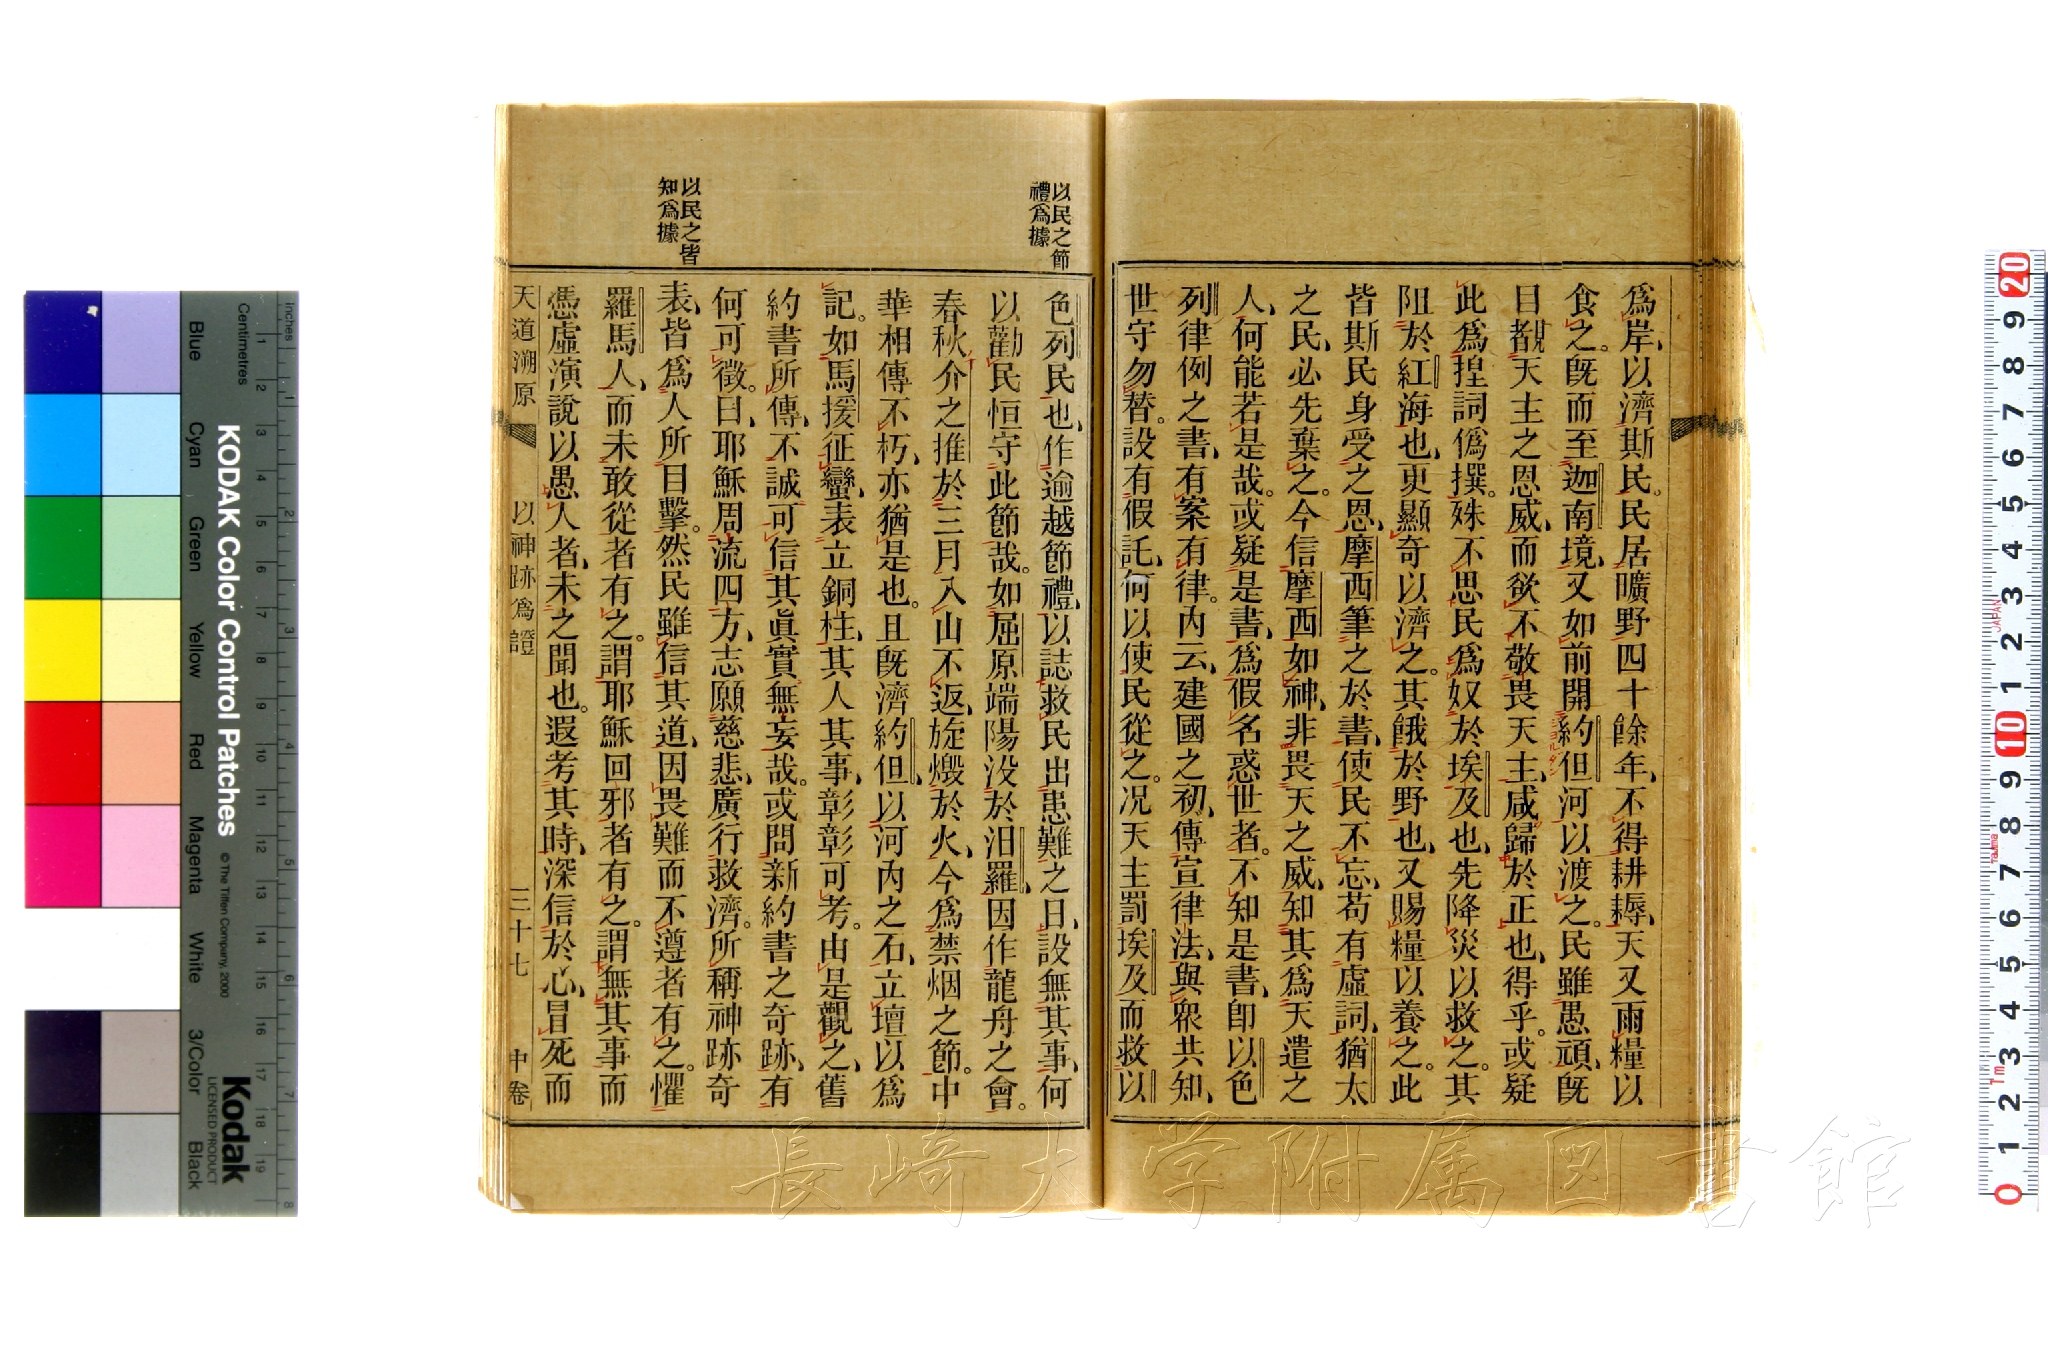 爲岸、以濟斯民。民居曠野四十餘年、不得耕耨、天又雨糧以
食之。旣而至迦南境、又如前開約但河以渡之。民雖愚頑、旣
目覩天主之恩威、而欲不敬畏天主、咸歸於正也、得乎。或疑
此爲揑詞僞撰。殊不思民爲奴於埃及也、先降災以救之。其
阻於紅海也、更顯奇以濟之。其餓於野也、又賜糧以養之。此
皆斯民身受之恩、摩西筆之於書、使民不忘、苟有虛詞、猶太
之民、必先棄之。今信摩西如神、非畏天之威、知其爲天遣之
人、何能若是哉。或疑是書、爲假名惑世者。不知是書、卽以色
列律例之書、有案有律。內云、建國之初、傳宣律法、與衆共知、
世守勿替。設有假託、何以使民從之。况天主罰埃及而救以
以民之節
禮爲據
色列民也、作逾越節禮、以誌救民出患難之日、設無其事、何
以勸民恒守此節哉。如屈原端陽没於汨羅、因作龍舟之會。
春秋介之推於三月入山不返、旋燬於火、今爲禁烟之節。中
華相傳不朽、亦猶是也。且旣濟約但、以河內之石、立壇以爲
記。如馬援征蠻、表立銅柱、其人其事、彰彰可考。由是觀之、舊
約書所傳、不誠可信其眞實無妄哉。或問新約書之奇跡、有
何可徵。曰、耶穌周流四方、志願慈悲、廣行救濟。所稱神跡奇
以民之皆
知爲據
表、皆爲人所目擊。然民雖信其道、因畏難而不遵者有之。懼
羅馬人、而未敢從者有之。謂耶穌回邪者有之。謂無其事而
憑虛演說以愚人者、未之聞也。遐考其時、深信於心、冒死而
天道溯原 以神跡爲證 三十七 中卷
長崎大学附属図書館
KODAK Color Control Patches
©The Tiffen Company, 2000
Kodak
LICENSED PRODUCT
Inches
Centimetres
Blue Cyan Green Yellow Red Magenta White 3/Color Black